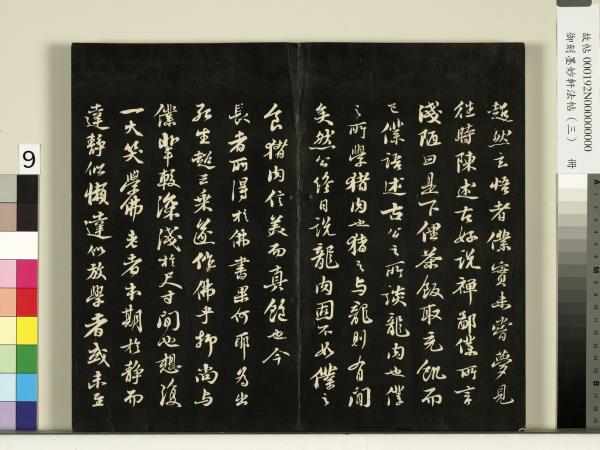 超然玄悟者僕實未嘗夢見
往時陳述古好說禪鄙僕所言
淺陋曰且下茶飯取充飢而
已僕語述古公之所談龍肉也僕
之所學猪肉也猪之與龍則有間
矣然公終日說龍肉固不如僕之
食猪肉信美而真飽也今
長者所得於佛書果何耶為出
死生超三乘遂作佛乎抑尚與
僕輩較深淺於尺寸間也想復
一大笑學佛老者本期於静而
達静似懶達似放學者或未至
故帖 000192N000000000
御刻墨妙軒法帖(三) 冊
9